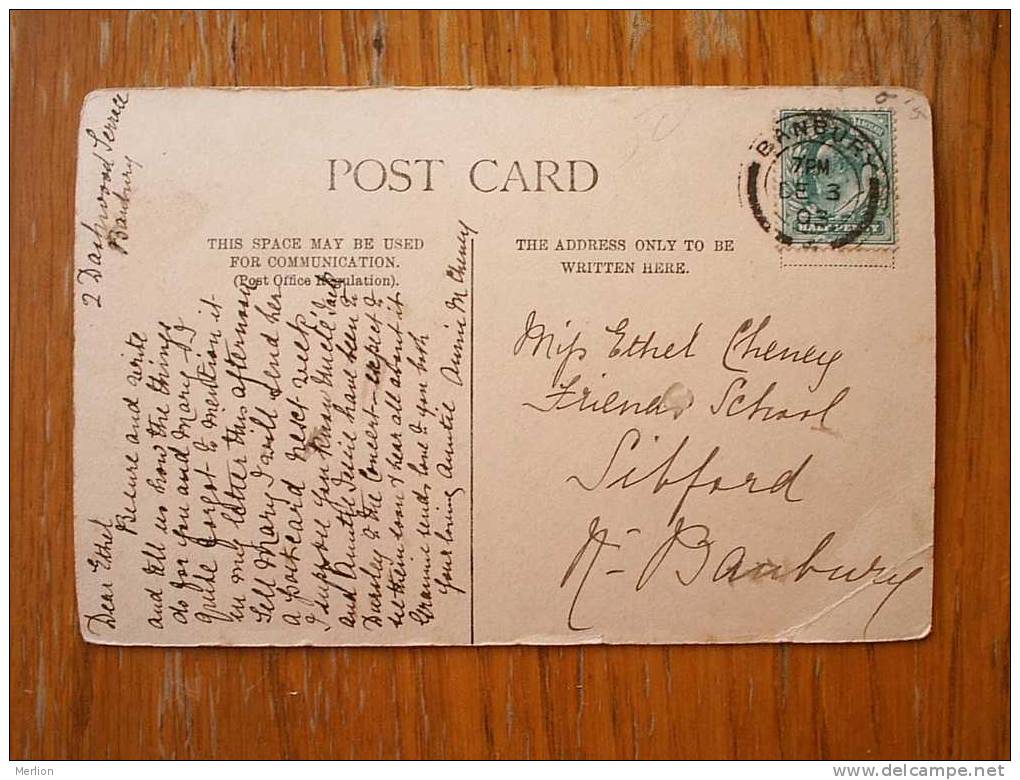 POST CARD
THIS SPACE MAY BE USED
FOR COMMUNICATION.
(Post Office Regulation).
THE ADDRESS ONLY TO BE
WRITTEN HERE.
BANBURY
7 PM
DE 3
03
HALF PENNY
2 Dashwood Terrace
Banbury
Dear Ethel
Be sure and write
and tell us how the things
do for you and Mary. I
quite forgot to mention it
in my letter this afternoon
Tell Mary I will send her
a postcard next week
I suppose you know Uncle
and Auntie have been to
Dursley to the Concert – expect to
see them soon & hear all about it
Grannie sends love to you both
your loving Auntie Annie M Cheney
Miss Ethel Cheney
Friends School
Sibford
Nr Banbury
Merlion
delcampe.net